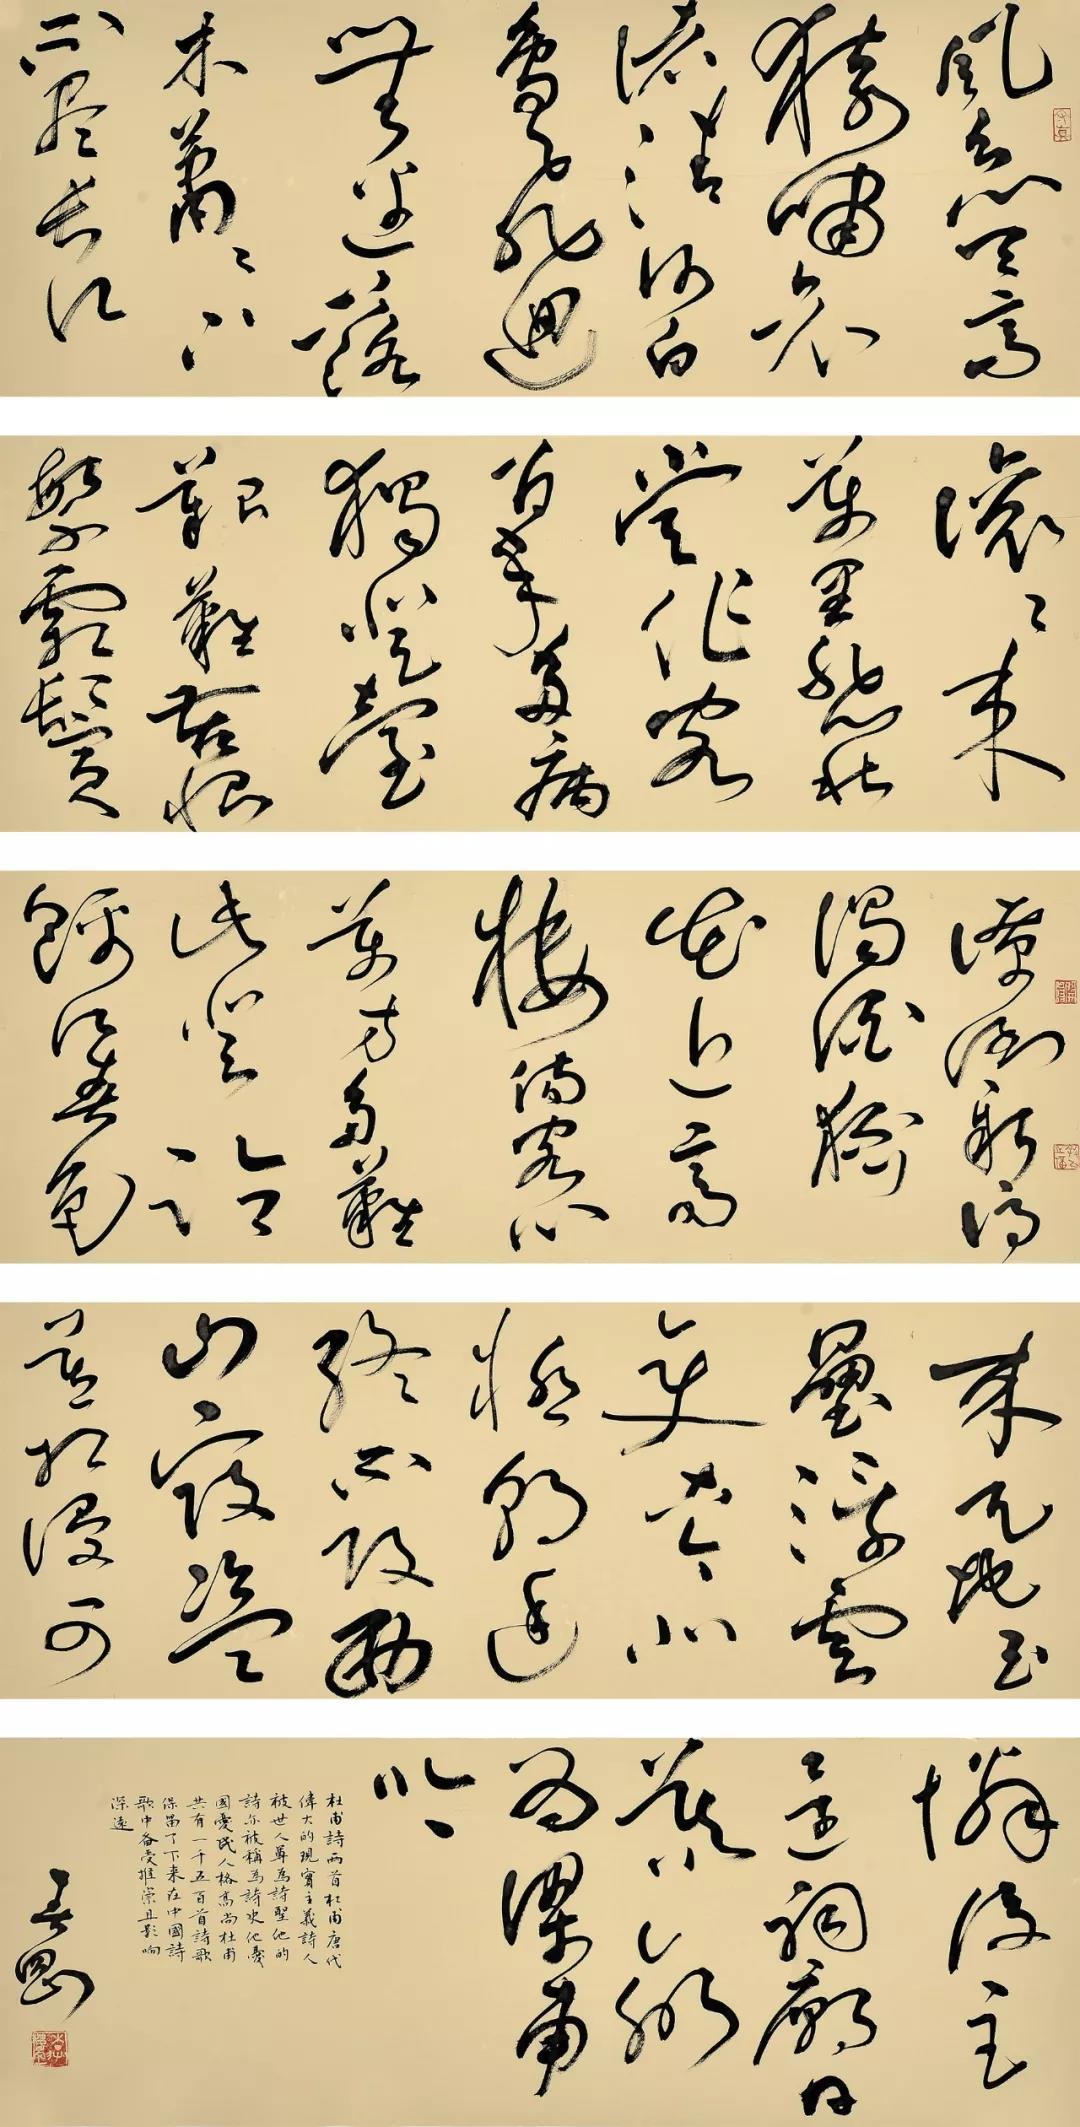 風急天高
猿嘯哀
渚清沙白
鳥飛迴
無邊落
木蕭々下
不盡長江
滚々来
萬里悲秋
常作客
百年多病
獨登臺
艱難苦恨
繁霜鬢
潦倒新停
濁酒杯
花近高
楼傷客心
萬方多難
此登臨
錦江春色
来天地玉
壘浮雲
變古今北
極朝廷
終不改西
山寇盗
莫相侵可
憐後主
還祠廟日
暮聊
為梁甫
吟
杜甫詩兩首杜甫唐代
偉大的現實主義詩人
被世人尊為詩聖他的
詩亦被稱為詩史他憂
國愛民人格高尚杜甫
共有一千五百首詩歌
保留了下来在中國詩
歌中备受推崇且影响
深遠